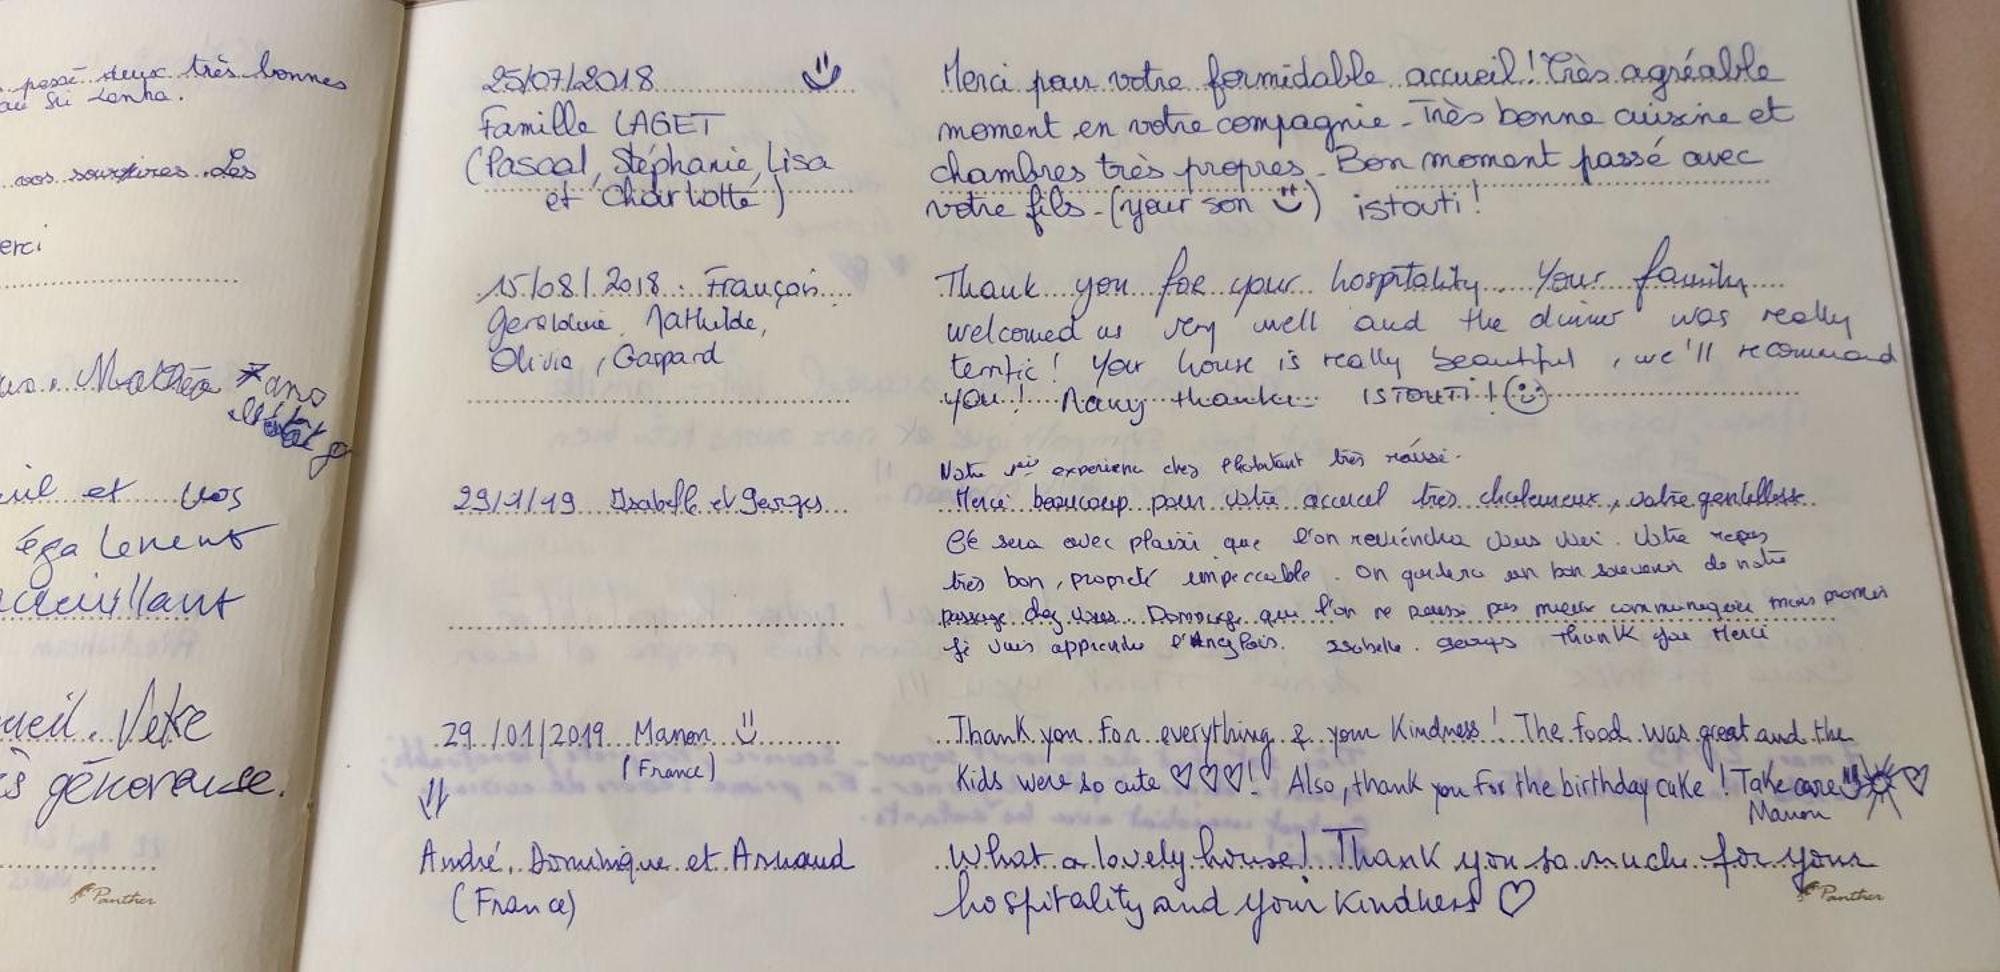 passé deux très bonnes
au Sri Lanka.
vos sourires. Les
erci
Mathéa 7 ans
eil et vos
également
accueillant
ueil. Votre
s généreuse.
Panther
25/07/2018
Famille LAGET
(Pascal, Stéphanie, Lisa
et Charlotte)
Merci pour votre formidable accueil! Très agréable
moment en votre compagnie - Très bonne cuisine et
chambres très propres - Bon moment passé avec
votre fils - (your son ) istouti!
15/08/2018 : François
Geraldine, Mathilde,
Olivia, Gaspard
Thank you for your hospitality. Your family
welcomed us very well and the dinner was really
terrific! Your house is really beautiful, we'll recommand
you! Many thanks ISTOUTI!
29/1/19 Isabelle et Georges
Notre experience chez l'habitant très réussi.
Merci beaucoup pour votre accueil très chaleureux, votre gentillesse
Ce sera avec plaisir que l'on reviendra vous voir. Votre repas
très bon, propreté impeccable. On gardera un bon souvenir de notre
passage chez vous. Dommage que l'on ne puisse pas mieux communiquer mais promis
je vais apprendre l'Anglais. Isabelle. Georges Thank you Merci
29/01/2019 Manon
(France)
Thank you for everything & your kindness! The food was great and the
kids were so cute ♡♡♡! Also, thank you for the birthday cake! Take care ♡
Manon
André, Dominique et Arnaud
(France)
What a lovely house! Thank you so much for your
hospitality and your kindness ♡
Panther